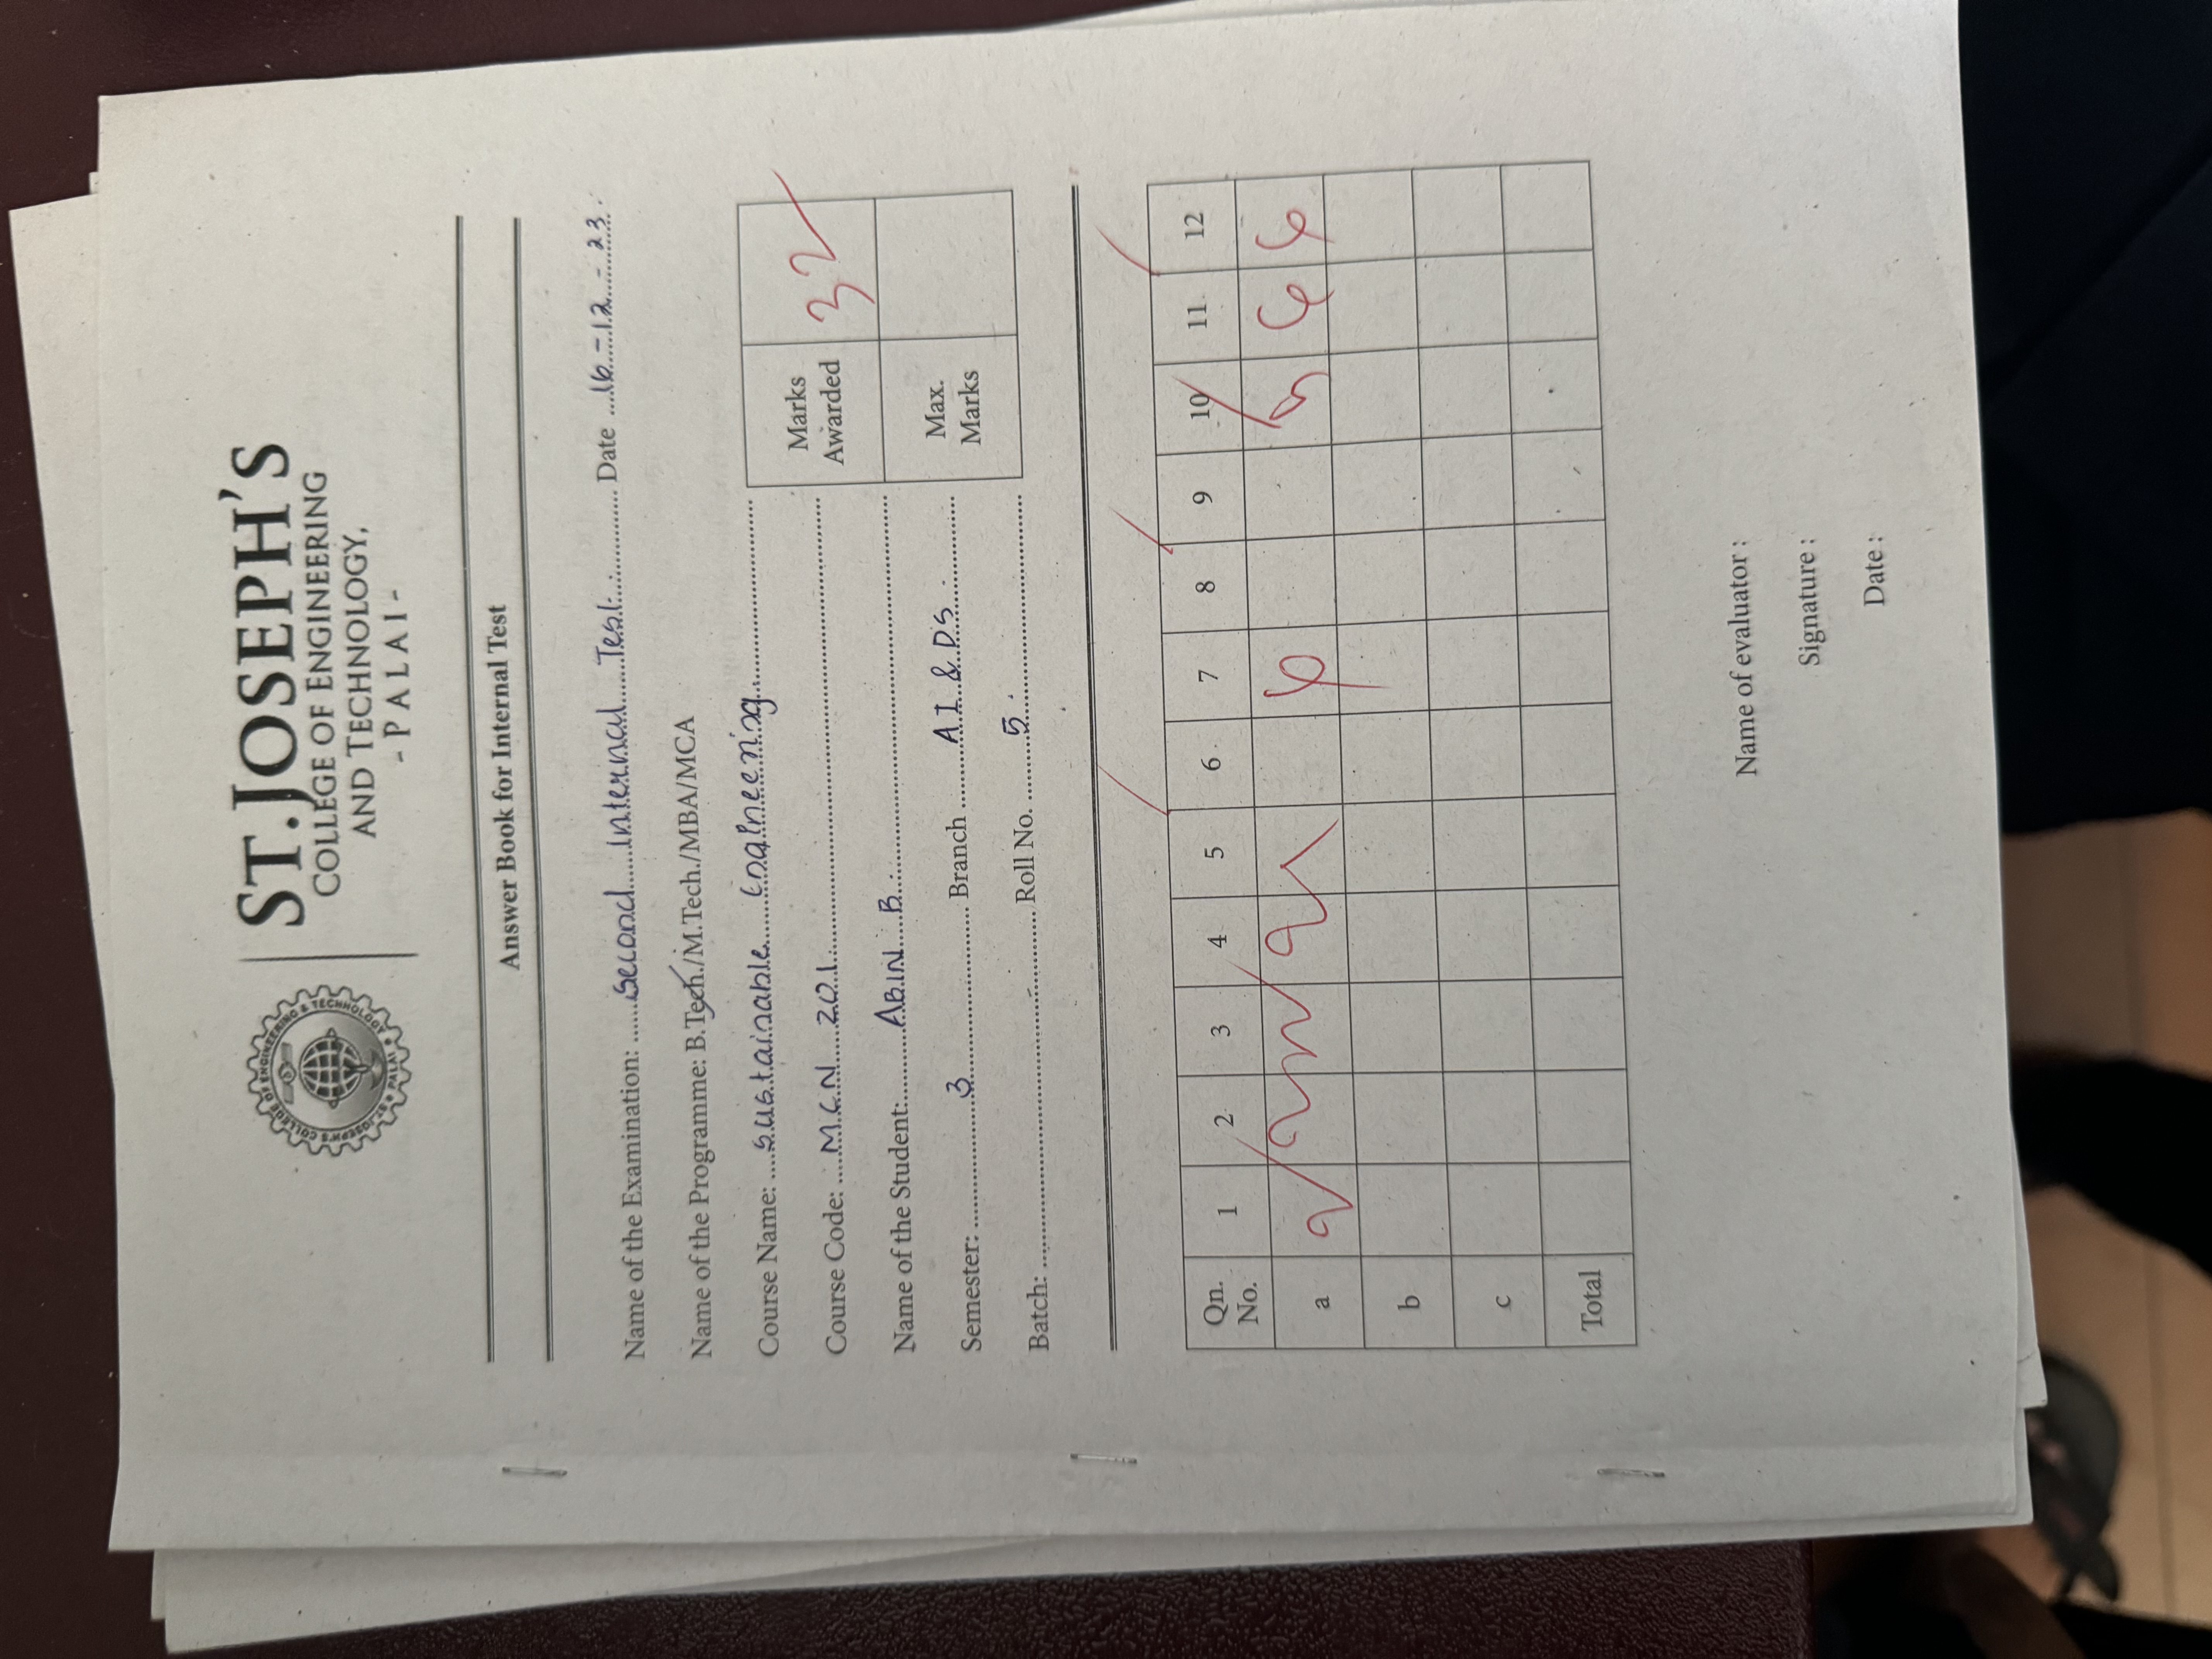 ST. JOSEPH'S
COLLEGE OF ENGINEERING
AND TECHNOLOGY,
- PALAI -
ST. JOSEPH'S COLLEGE OF ENGINEERING & TECHNOLOGY
PALAI
Answer Book for Internal Test
Name of the Examination: Second Internal Test. Date 16-12-23.
Name of the Programme: B.Tech./M.Tech./MBA/MCA
Course Name: Sustainable Engineering.
Course Code: MCN 201.
Marks Awarded 32
Name of the Student: ABIN B.
Semester: 3 Branch AI & DS.
Max. Marks
Batch: Roll No. 5.
Qn. No. 1 2 3 4 5 6 7 8 9 10 11 12
a 2 2 2 2 6 6 6
b
c
Total
Name of evaluator :
Signature :
Date :